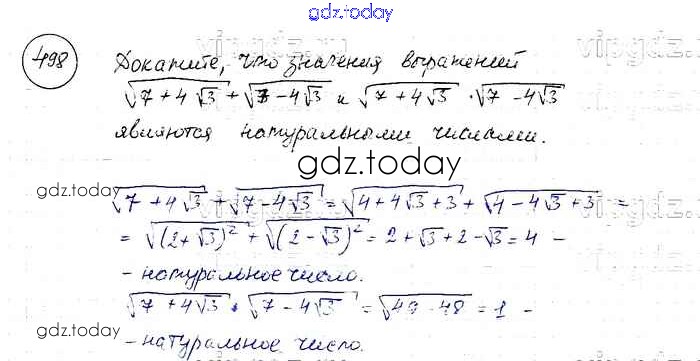 gdz.today
vipgdz.ru
498
Докажите, что значения выражений
√(7 + 4√3) + √(7 - 4√3) и √(7 + 4√3) · √(7 - 4√3)
являются натуральными числами.
gdz.today
gdz.today
√(7 + 4√3) + √(7 - 4√3) = √(4 + 4√3 + 3) + √(4 - 4√3 + 3) =
= √((2 + √3)²) + √((2 - √3)²) = 2 + √3 + 2 - √3 = 4 -
- натуральное число.
√(7 + 4√3) · √(7 - 4√3) = √(49 - 48) = 1 -
gdz.today
- натуральное число.